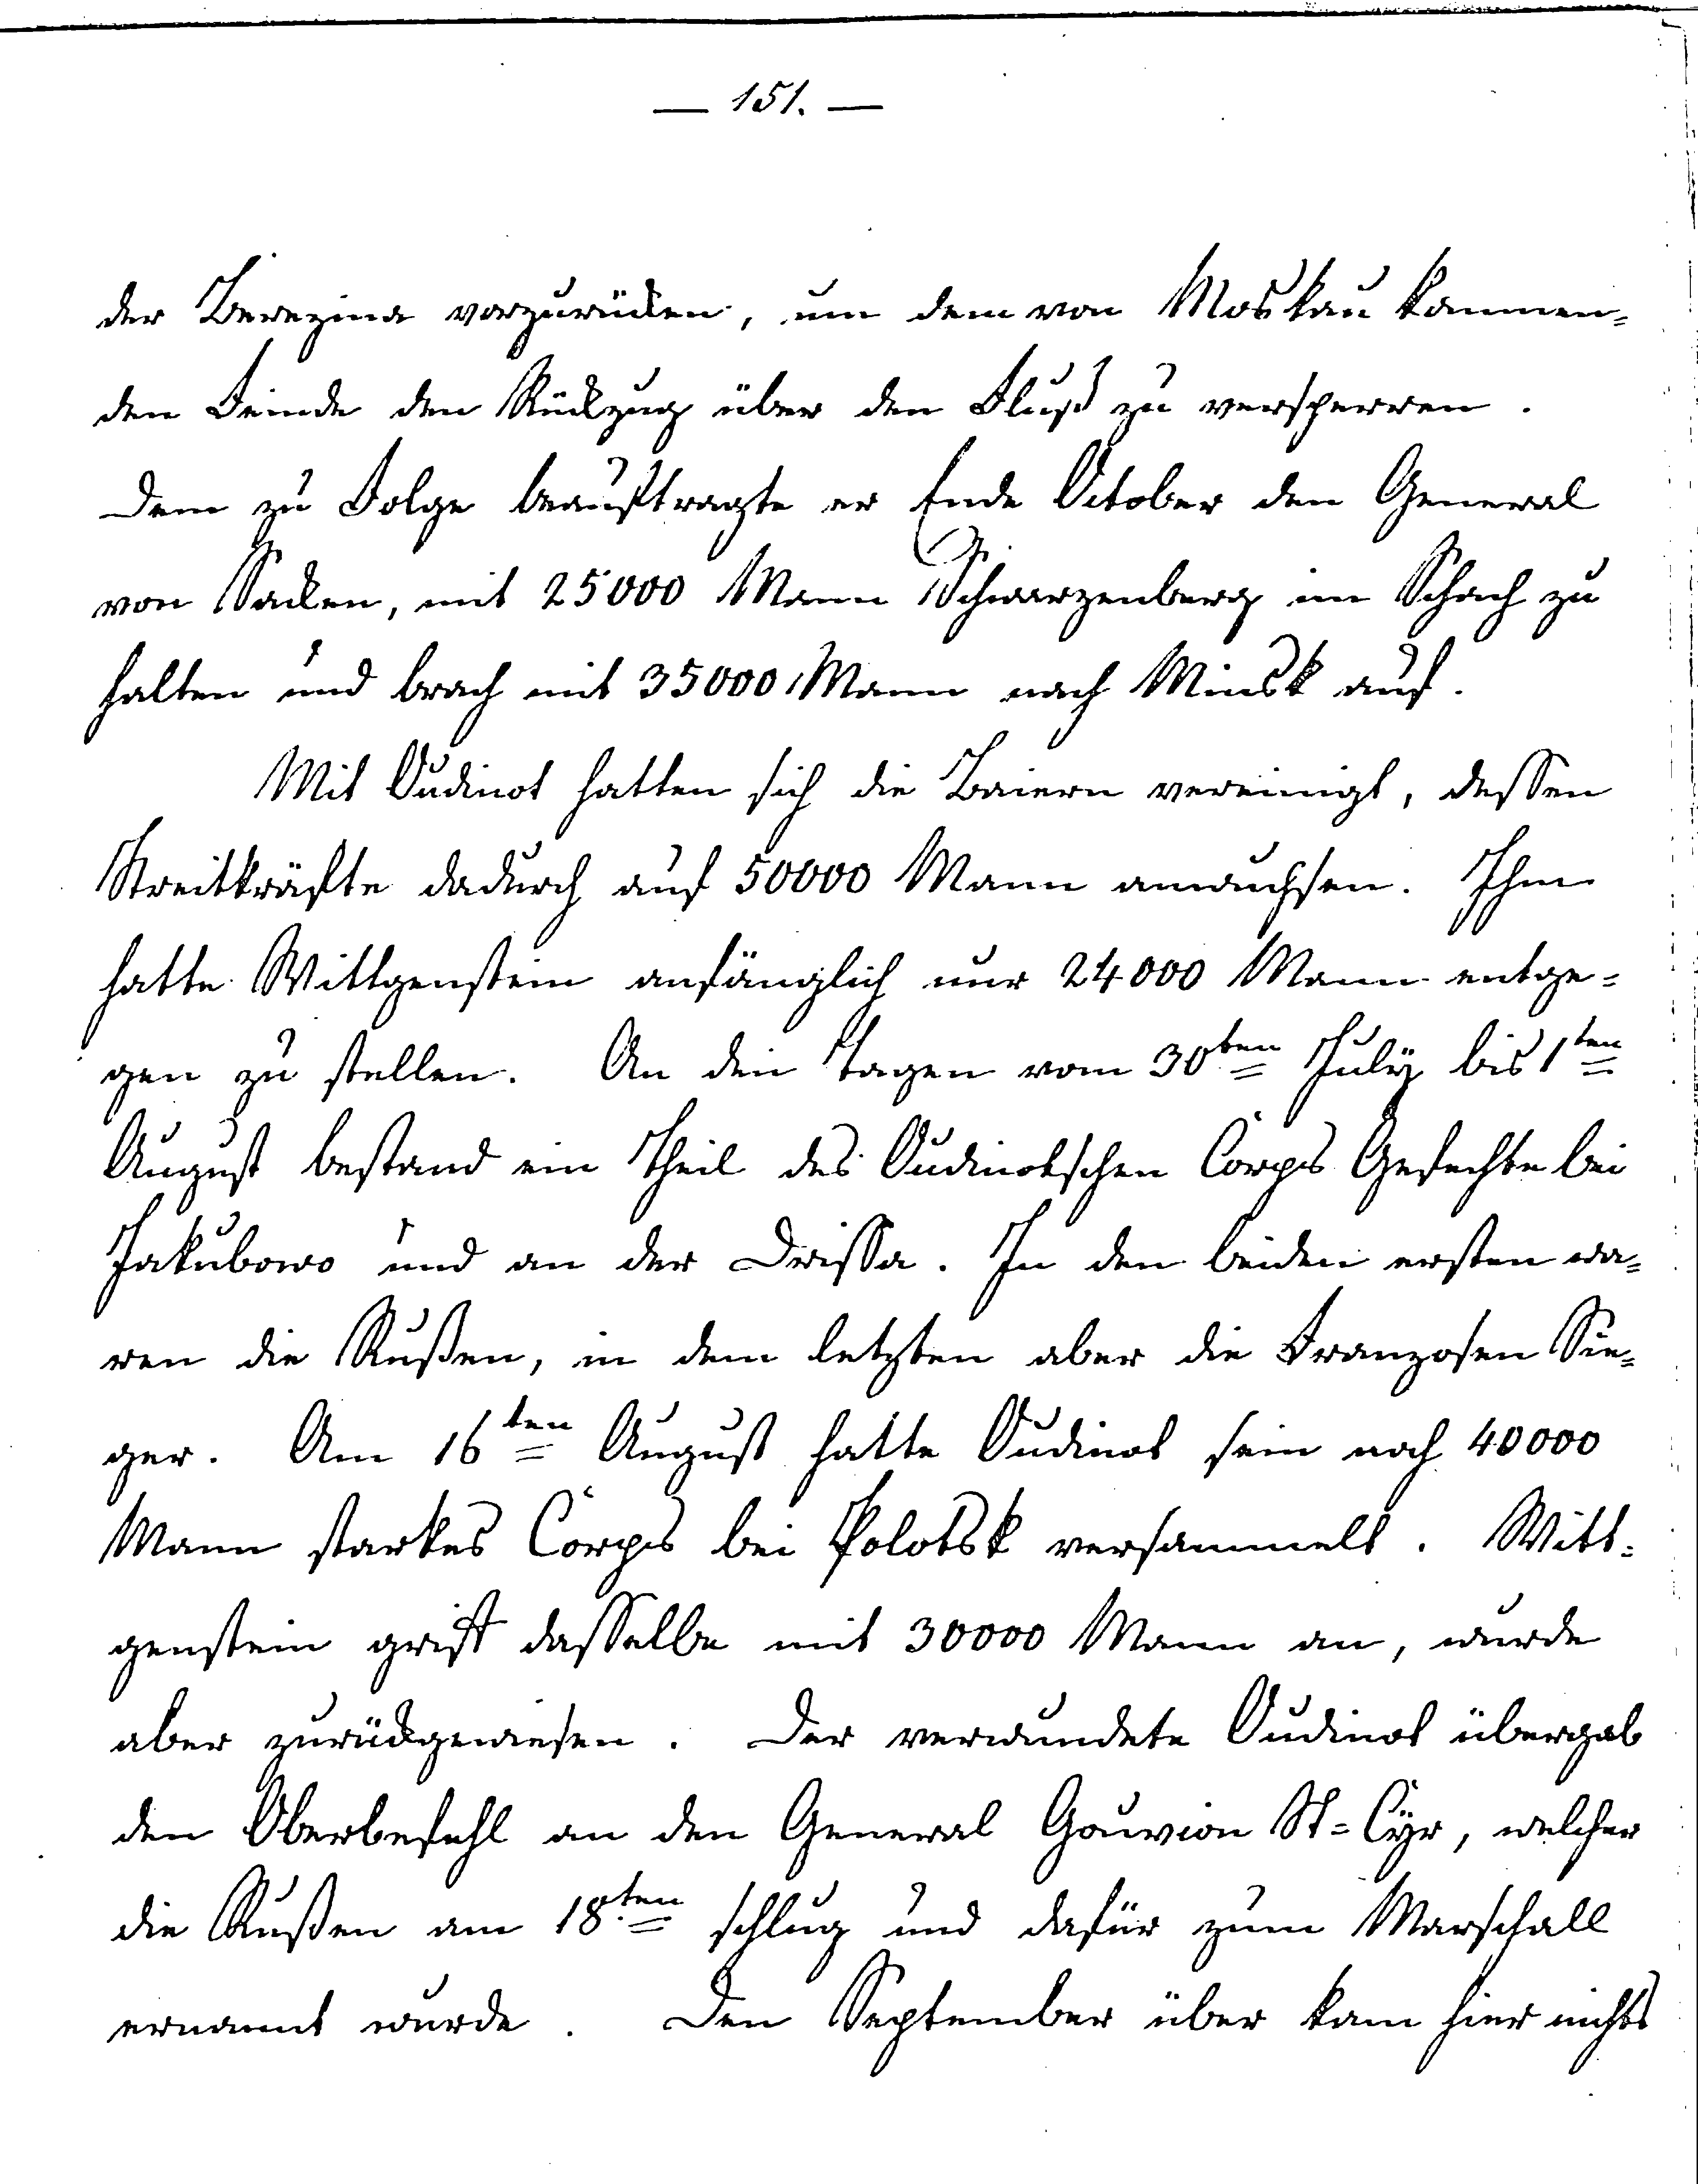 — 151. —
der Berezina vorzurücken, um dem von Moskau kommen=
den Feinde den Rückzug über den Fluß zu versperren.
Dem zu Folge beauftragte er Ende October den General
von Sacken, mit 25000 Mann Schwarzenberg im Schach zu
halten und brach mit 35000 Mann nach Minsk auf.
Mit Oudinot hatten sich die Baiern vereinigt, dessen
Streitkräfte dadurch auf 50000 Mann anwuchsen. Ihm
hatte Wittgenstein anfänglich nur 24000 Mann entge=
gen zu stellen. An den Tagen vom 30ten July bis 1ten
August bestand ein Theil des Oudinotschen Corps Gefechte bei
Jakubowo und an der Drissa. In den beiden ersten wa=
ren die Rußen, in dem letzten aber die Franzosen Sie=
ger. Am 16ten August hatte Oudinot sein noch 40000
Mann starkes Corps bei Polotsk versammelt. Witt=
genstein griff dasselbe mit 30000 Mann an, wurde
aber zurückgewiesen. Der verwundete Oudinot übergab
den Oberbefehl an den General Gouvion St=Cyr, welcher
die Rußen am 18ten schlug und dafür zum Marschall
ernannt wurde. Den September über kam hier nichts